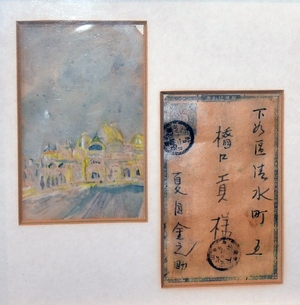 下谷區清水町五
橋口貢様
夏目金之助